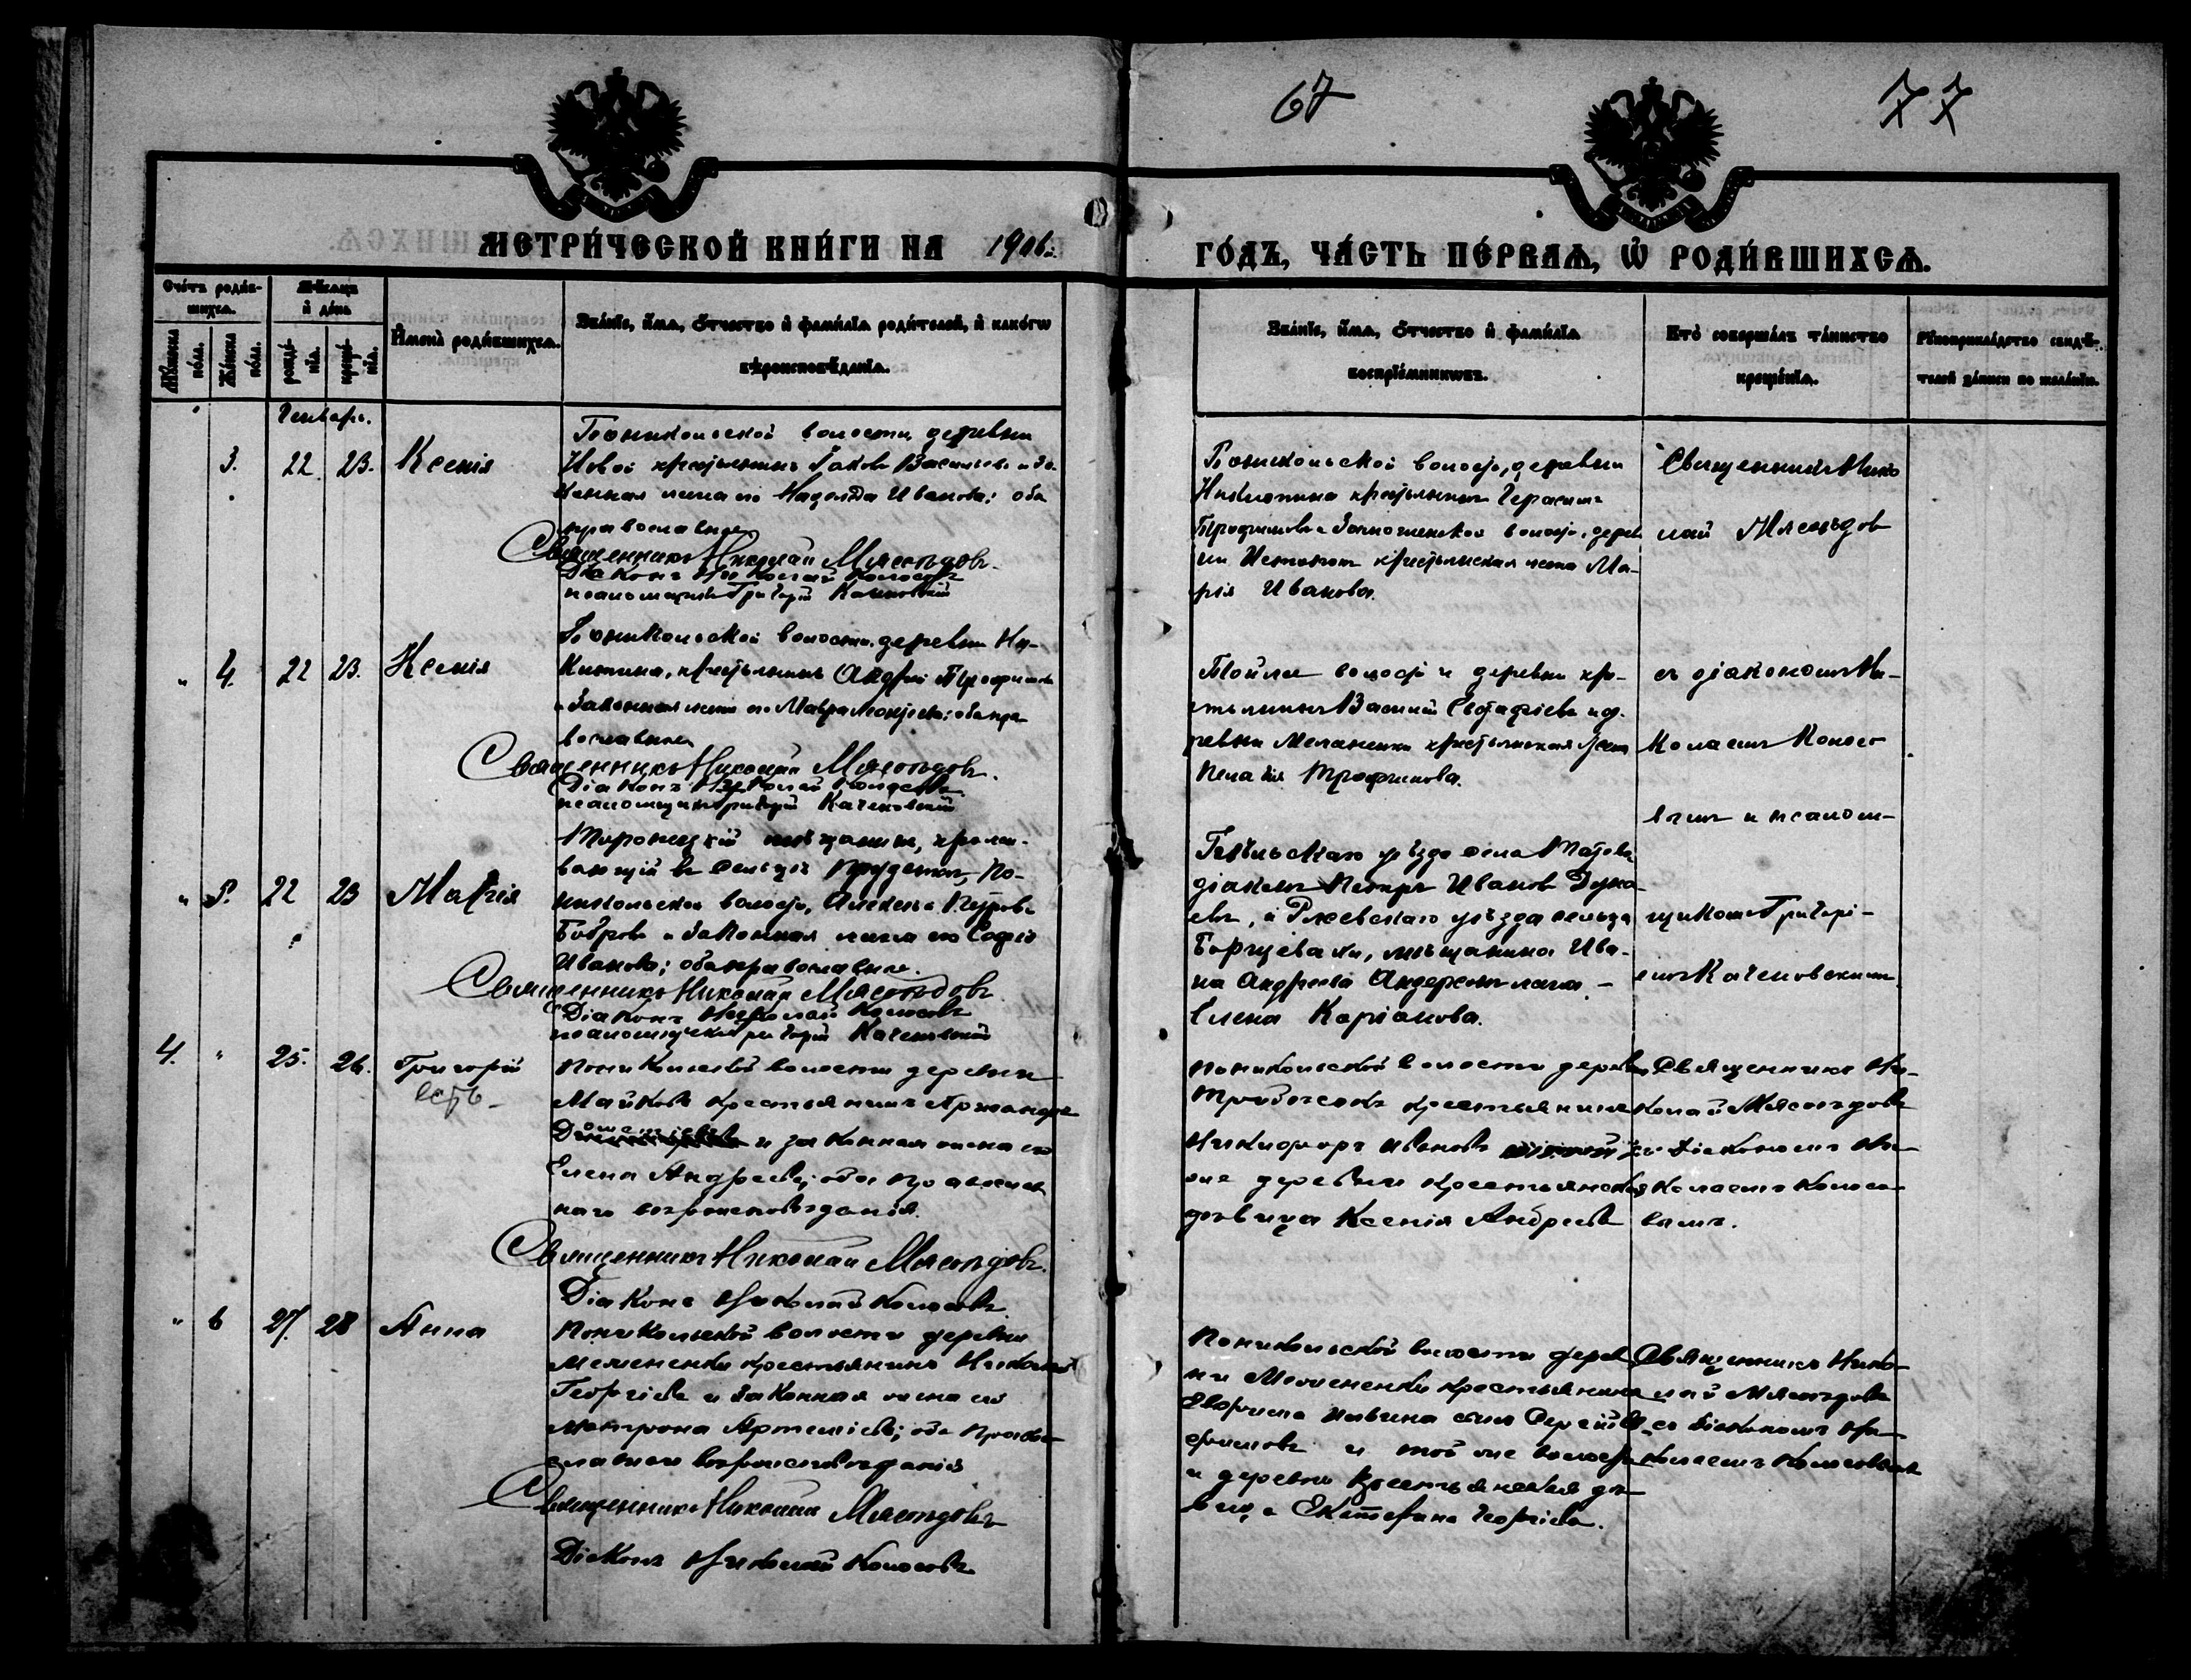 67
77
МЕТРИ́ЧЕСКОЙ КНИ́ГИ НА 1906 г.
ГО́ДЪ, ЧА́СТЬ ПЕ́РВАѦ, Ѡ҆ РОДИ́ВШИХСѦ.
Сче́тъ роди́в-
шихсѧ.
Мѣ́сѧцъ
и҆ де́нь
Мꙋ́жеска
по́ла.
Же́нска
по́ла.
рожде́-
нїѧ.
креще́-
нїѧ.
И҆мена̀ роди́вшихсѧ.
Зва́нїе, и҆́мѧ, ѻ҆́тчество и҆ фами́лїѧ роди́телей, и҆ како́гѡ
вѣроисповѣ́данїѧ.
Зва́нїе, и҆́мѧ, ѻ҆́тчество и҆ фами́лїѧ
воспрїе́мникѡвъ.
Кто̀ соверша́лъ та́инство
креще́нїѧ.
Рꙋкоприкла́дство свидѣ́-
телей за́писи по жела́нїю.
Генварь.
3. 22 23. Ксенія
Поникольской волости деревни
Новой крестьянинъ Іаковъ Васильевъ и за-
конная жена его Надежда Иванова; оба
православные
Священникъ Николай Мясоѣдовъ.
Діаконъ Николай Колосовъ
псаломщикъ Григорій Каченовскій
Поникольской волости, деревни
Никитина крестьянинъ Герасимъ
Трофимовъ и волости, дерев
ни крестьянская жена Ма-
рія Иванова.
Священникъ Нико
лай Мясоѣдов
" 4. 22 23. Ксенія
Поникольской волости, деревни Ни-
китина, крестьянинъ Андрей Трофимовъ
и законная жена его Мавра; оба пра
вославные
Священникъ Николай Мясоѣдовъ.
Діаконъ Николай Колосовъ
псаломщикъ Григорій Каченовскій
Той же волости и деревни кре-
стьянинъ Василій Евстафіевъ и де-
ревни Меленки крестьянская жена
Пелагія Трофимова.
съ діакономъ Ни-
колаемъ Колосо
вымъ и псалом-
" 5. 22 23 Марія
мѣщанинъ, прожи-
вающій въ сельцѣ По-
никольской волости, Алексѣй Петровъ
Бобровъ и законная жена его Софія
Иванова; оба православные.
Священникъ Николай Мясоѣдовъ
Діаконъ Николай Колосовъ
псаломщикъ Григорій Каченовскій
Бѣльскаго уѣзда села Татева
діаконъ Петръ Иванов Дуна-
евъ, и Ржевскаго уѣзда сельца
Борщевки, мѣщанина Ива-
на Андреева Андерсонъ жена -
Елена Карпакова.
щикомъ Григорі-
емъ Каченовскимъ
4. " 25. 26. Григорій
есть
Поникольской волости деревни
Майкова крестьянинъ
Дометіевъ и законная жена его
Елена Андреева; оба православ
наго вѣроисповѣданія.
Священникъ Николай Мясоѣдовъ.
Діаконъ Николай Колосовъ
Поникольской волости деревни
крестьянинъ
Никифоръ Ивановъ той
же деревни крестьянская
дѣвица Ксенія Андреева
Священникъ Ни-
колай Мясоѣдовъ
съ Діакономъ Ни-
колаемъ Колосо-
вымъ.
" 6 27. 28 Анна
Поникольской волости деревни
Меленки крестьянинъ Николай
Георгіевъ и законная жена его
Матрона Артеміева; оба право
славнаго вѣроисповѣданія
Священникъ Николай Мясоѣдовъ
Діаконъ Николай Колосовъ
Поникольской волости дерев
ни Меленки крестьянина
сынъ Сергій
и той же волости
и деревни крестьянская дѣ-
вица Екатерина Георгіева.
Священникъ Нико-
лай Мясоѣдовъ
съ Діакономъ Ни-
колаемъ Колосовымъ